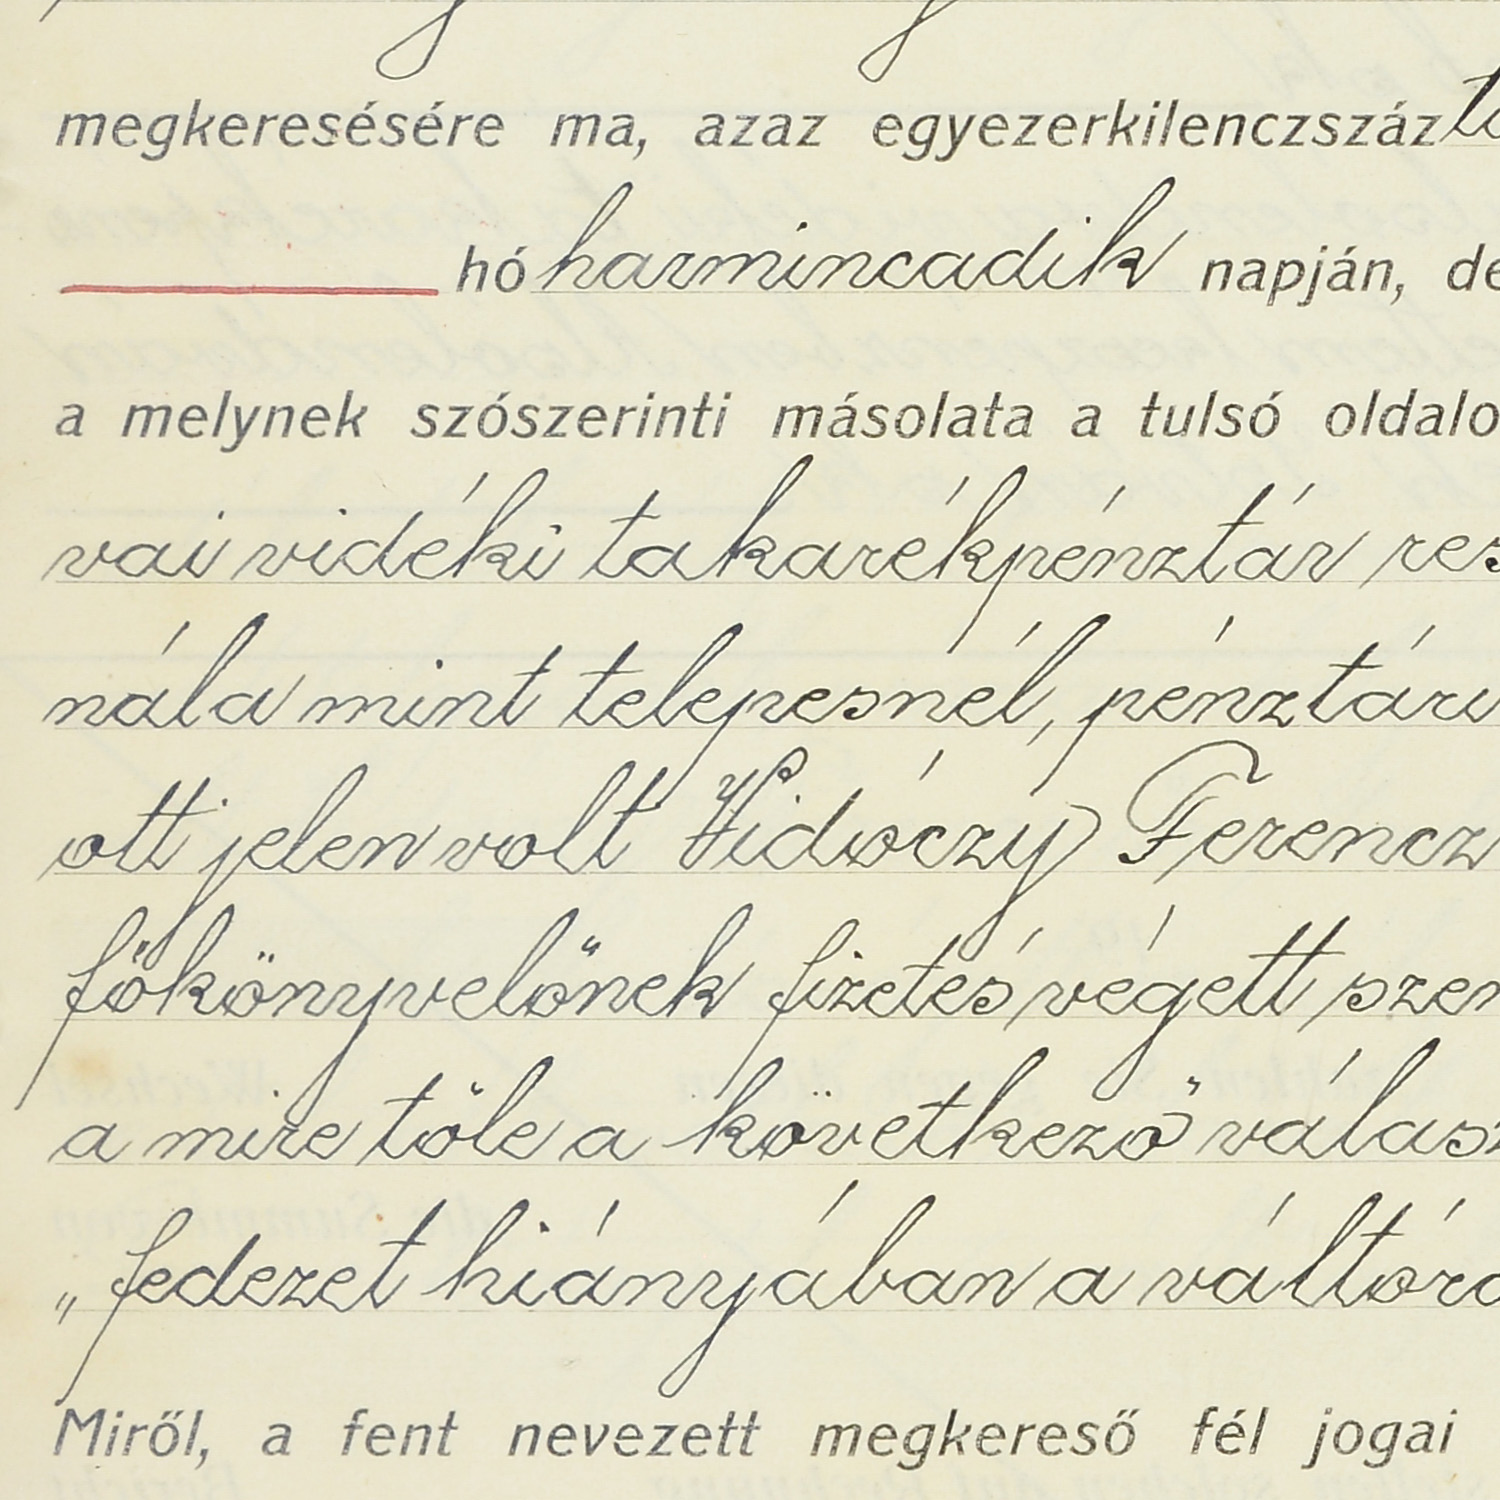 megkeresésére ma, azaz egyezerkilenczszáz
hó harmincadik napján, de
a melynek szószerinti másolata a tulsó oldalo
vai vidéki takarékpénztár res
nála mint telepesnél, pénztáru
ott jelen volt Vidóczy Ferencz
főkönyvelőnek fizetés végett szem
a mire tőle a következő válasz
„fedezet hiányában a váltóra
Miről, a fent nevezett megkereső fél jogai